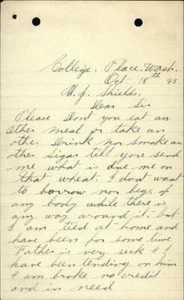 College. Place. Wash.
Oct 18th 95
M. J. Shields.
Dear Sir
Please Dont you eat an
Other meal or take an
other Drink nor smoke an
other Sigar till you send
me what is due me on
that wheat. I dont want
to borrow nor beg. of
any body while there is
any way around it. but
I am tied at home and
have been for some time
Father is very sick I
have been tending on him
I am broke no credit
and in need